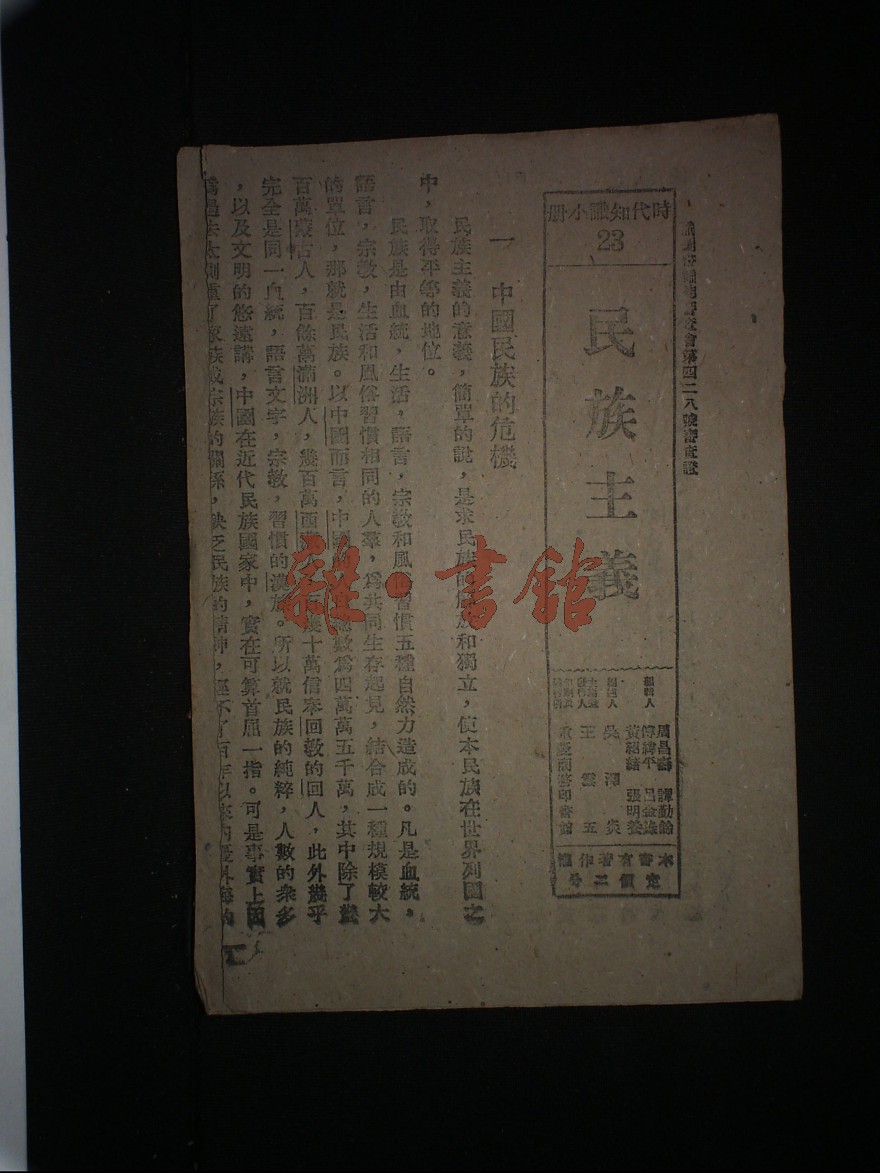 會第四二八號審查證
時代知識小冊
23
民族主義
編輯人
周昌壽 譚勤餘
傅緯平 呂金錄
黃紹緒 張明養
編述人 吳澤炎
發行人 王雲五
重慶商務印書館
本書有著作權
定價二分
一 中國民族的危機
民族主義的意義,簡單的說,是求民族的解放和獨立,使本民族在世界列國之
中,取得平等的地位。
民族是由血統,生活,語言,宗教和風俗習慣五種自然力造成的。凡是血統,
語言,宗教,生活和風俗習慣相同的人羣,爲共同生存起見,結合成一種規模較大
的單位,那就是民族。以中國而言,中國的 總數爲四萬萬五千萬,其中除了幾
百萬蒙古人,百餘萬滿洲人,幾百萬西藏 百幾十萬信奉回教的回人,此外幾乎
完全是同一血統,語言文字,宗教,習慣的漢族。所以就民族的純粹,人數的衆多
,以及文明的悠遠講,中國在近代民族國家中,實在可算首屈一指。可是事實上因
爲過去太側重了家族或宗族的關係,缺乏民族的精神,經不了百年以來內憂外侮的
雜·書館